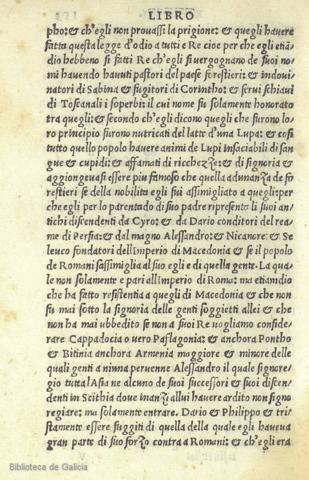 LIBRO
pho: & ch'egli non prouassi la prigione: & quegli hauere
fatta questa legge d'odio a tutti e Re cioe per che egli etiā
dio hebbeno si fatti Re ch'egli si uergognano de suoi no
mi hauendo hauuti pastori del paese forestieri: & indoui
natori di Sabina & fugitori di Corintho: & serui schiaui
di Toscana li soperbi: il cui nome fu solamente honorato
tra quegli: & secondo ch'egli dicono quegli che furono lo
ro principio furono nutricati del latte d'una Lupa: & cosi
tutto quello popolo hauere animi de Lupi insaciabili di san
gue & cupidi: & affamati di ricchezze: & di signoria &
aggiongeuasi essere piu famoso che quella adunāza de fo
restieri se della nobilita egli fui assimigliato a quegli: per
che egli per lo parentado di suo padre ripresente li suoi an
tichi discendenti da Cyro: & da Dario conditori del rea
me di Persia: & dal magno Alessandro: & Nicanore: & Se
leuco fondatori dell'Imperio di Macedonia & se il popolo
de Romani sassimiglia al suo egli e di quella gente. La qua
le non solamente e pari all'imperio di Roma: ma etiamdio
che ha fatto resistentia a quegli di Macedonia & che non
fu mai sotto la signoria delle genti soggietti allei & che
non ha mai ubbedito se non a suoi Re uogliamo conside
rare Cappadocia o uero Paflagonia: & anchora Pontho
& Bitinia anchora Armenia maggiore & minore delle
quali genti a niuna peruenne Alessandro il quale signore
gio tutta l'Asia ne alcuno de suoi successori & suoi discen
denti in Scithia doue inanzi allui hauere ardito non signo
regiare: ma solamente entrare. Dario & Philippo & tri
stamente essere fuggiti di quella della quale egli haueua
gran parte di suo forzo contra a Romani: & ch'egli era
Biblioteca de Galicia